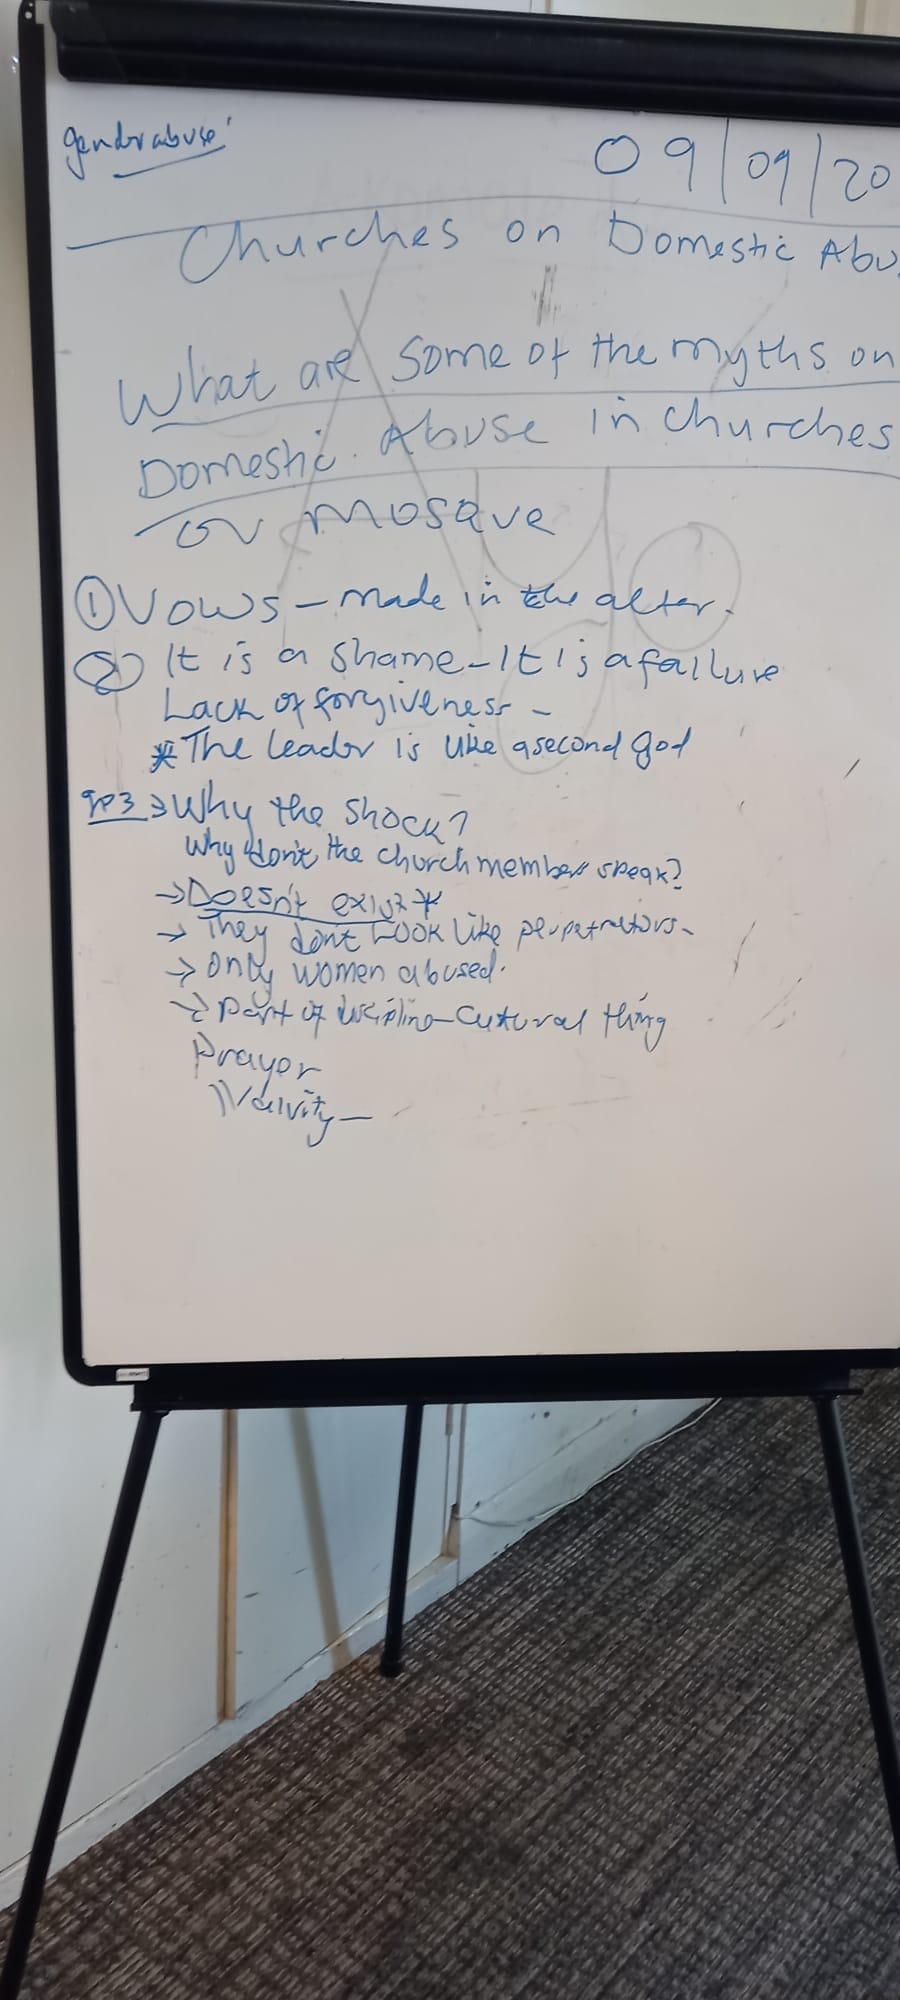 gender abuse'
09/09/20
Churches on Domestic Abu
What are some of the myths on
Domestic. Abuse in churches
or Mosque
① Vows - made in the alter.
② It is a shame - It is a failure
Lack of forgiveness -
* The leader is like a second god
gp3 > Why the shock?
Why don't the church members speak?
→ Doesn't exist *
→ They dont Look like perpetrators -
→ only women abused.
→ part of discipline - Cutural thing
Prayer